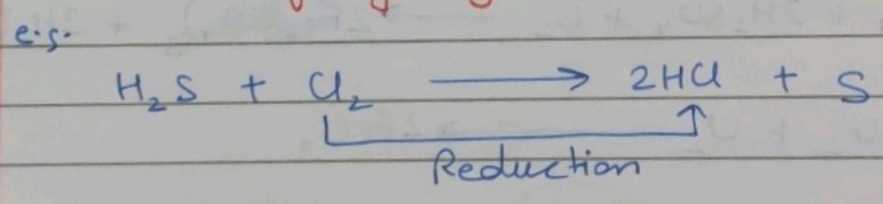 e.g.
H₂S + Cl₂ → 2HCl + S
Reduction